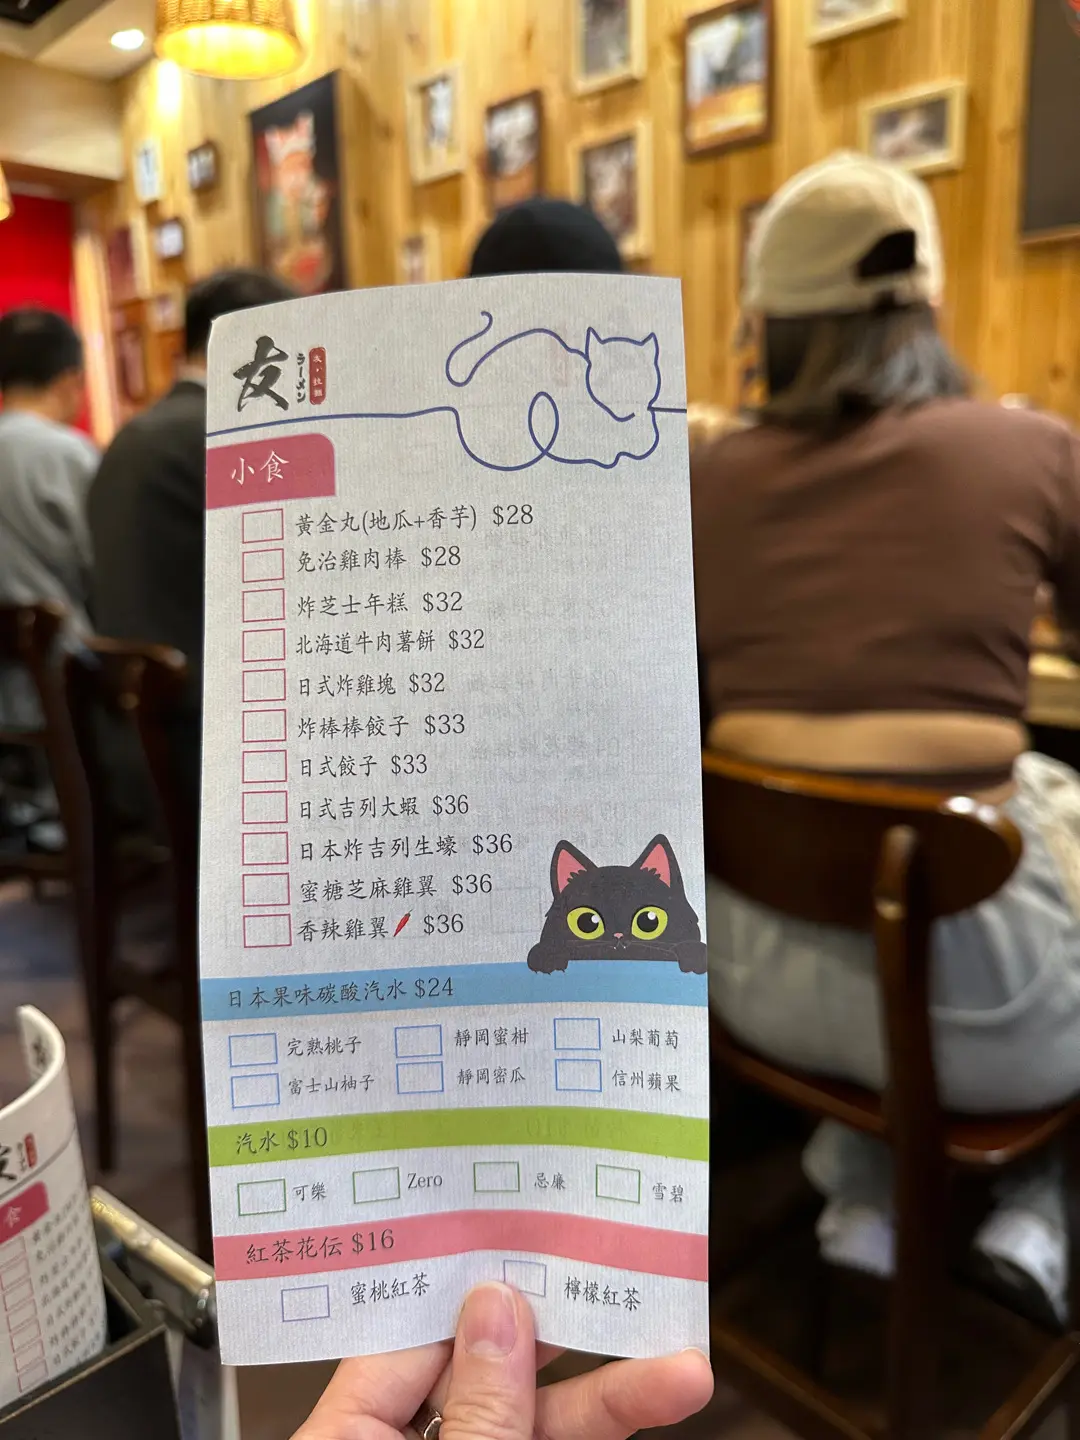 友
ラーメン
友・拉麵
小食
黃金丸(地瓜+香芋) $28
免治雞肉棒 $28
炸芝士年糕 $32
北海道牛肉薯餅 $32
日式炸雞塊 $32
炸棒棒餃子 $33
日式餃子 $33
日式吉列大蝦 $36
日本炸吉列生蠔 $36
蜜糖芝麻雞翼 $36
香辣雞翼 $36
日本果味碳酸汽水 $24
完熟桃子 靜岡蜜柑 山梨葡萄
富士山柚子 靜岡密瓜 信州蘋果
汽水 $10
可樂 Zero 忌廉 雪碧
紅茶花伝 $16
蜜桃紅茶 檸檬紅茶